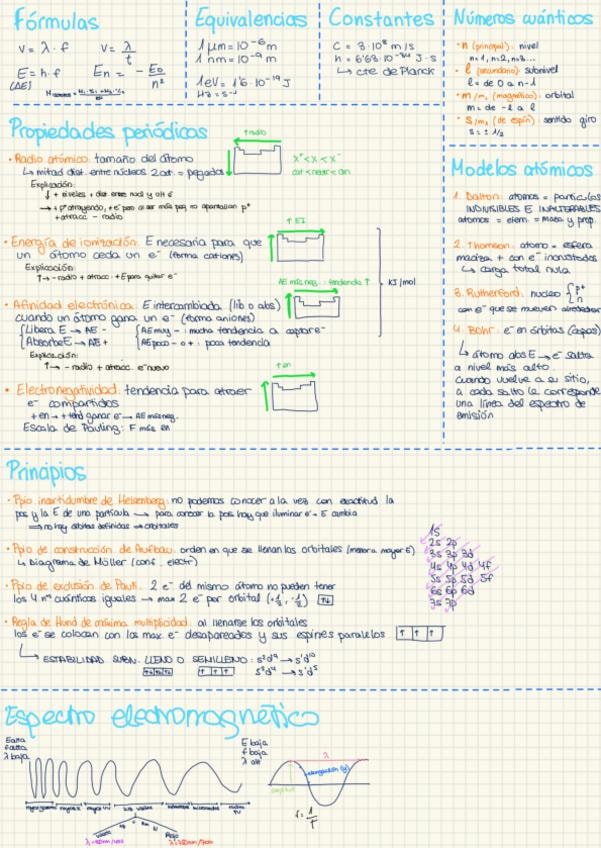 Fórmulas
v = λ · f
v = λ/t
E = h · f
(ΔE)
En = - E0/n²
Equivalencias
1 μm = 10⁻⁶ m
1 nm = 10⁻⁹ m
1eV = 1'6 · 10⁻¹⁹ J
Hz = s⁻¹
Constantes
C = 3 · 10⁸ m/s
h = 6'63 · 10⁻³⁴ J · s
↳ cte de Planck
Números cuánticos
• n (principal): nivel
n = 1, n=2, n=3...
• l (secundario): subnivel
l = de 0 a n-1
• m/ml (magnético): orbital
m = de -l a l
• s/ms (de espín): sentido giro
s = ± 1/2
Propiedades periódicas
• Radio atómico: tamaño del átomo
↳ mitad dist. entre núcleos 2 at. = pegados
Explicación:
↑ radio
X⁺ < X < X⁻
cat < neutr < an
• Energía de ionización: E necesaria para que
un átomo ceda un e⁻ (forma cationes)
Explicación:
↑→ - radio + atracc. + E para quitar e⁻
↑ EI
• Afinidad electrónica: E intercambiada (lib o abs)
cuando un átomo gana un e⁻ (forma aniones)
Libera E → AE -
Absorbe E → AE +
AE muy - : mucha tendencia a captar e⁻
AE poco - o + : poca tendencia
Explicación:
↑→ - radio + atracc. e⁻ nuevo
AE más neg. : tendencia ↑
KJ/mol
• Electronegatividad: tendencia para atraer
e⁻ compartidos
+ en → + tend ganar e⁻ → AE más neg.
Escala de Pauling: F más en
↑ en
Modelos atómicos
1. Dalton: átomos = partículas
INDIVISIBLES E INALTERABLES
átomos = elem. = masa y prop.
2. Thomson: átomo = esfera
maciza + con e⁻ incrustados
↳ carga total nula
3. Rutherford: núcleo { p⁺ n
con e⁻ que se mueven alrededor
4. Bohr: e⁻ en órbitas (capas)
↳ átomo abs E → e⁻ salta
a nivel más alto.
Cuando vuelve a su sitio,
a cada salto le corresponde
una línea del espectro de
emisión
Principios
• Ppio incertidumbre de Heisenberg: no podemos conocer a la vez con exactitud la
pos y la E de una partícula → para conocer la pos hay que iluminar e⁻ → E cambia
⟹ no hay órbitas definidas → orbitales
• Ppio de construcción de Aufbau: orden en que se llenan los orbitales (menor a mayor E)
↳ Diagrama de Möller (conf. electr)
• Ppio de exclusión de Pauli: 2 e⁻ del mismo átomo no pueden tener
los 4 nos cuánticos iguales → max 2 e⁻ por orbital (+1/2, -1/2) ↑↓
• Regla de Hund de máxima multiplicidad: al llenarse los orbitales
los e⁻ se colocan con los max. e⁻ desapareados y sus espines paralelos ↑ ↑ ↑
↳ ESTABILIDAD SUBN. LLENO O SEMILLENO: s²d⁹ → s¹d¹⁰
s²d⁴ → s¹d⁵
1s
2s 2p
3s 3p 3d
4s 4p 4d 4f
5s 5p 5d 5f
6s 6p 6d
7s 7p
Espectro electromagnético
E alta
f alta
λ baja
E baja
f baja
λ alta
λ
elongación (y)
amplitud
f = 1/T
Violeta
Rojo